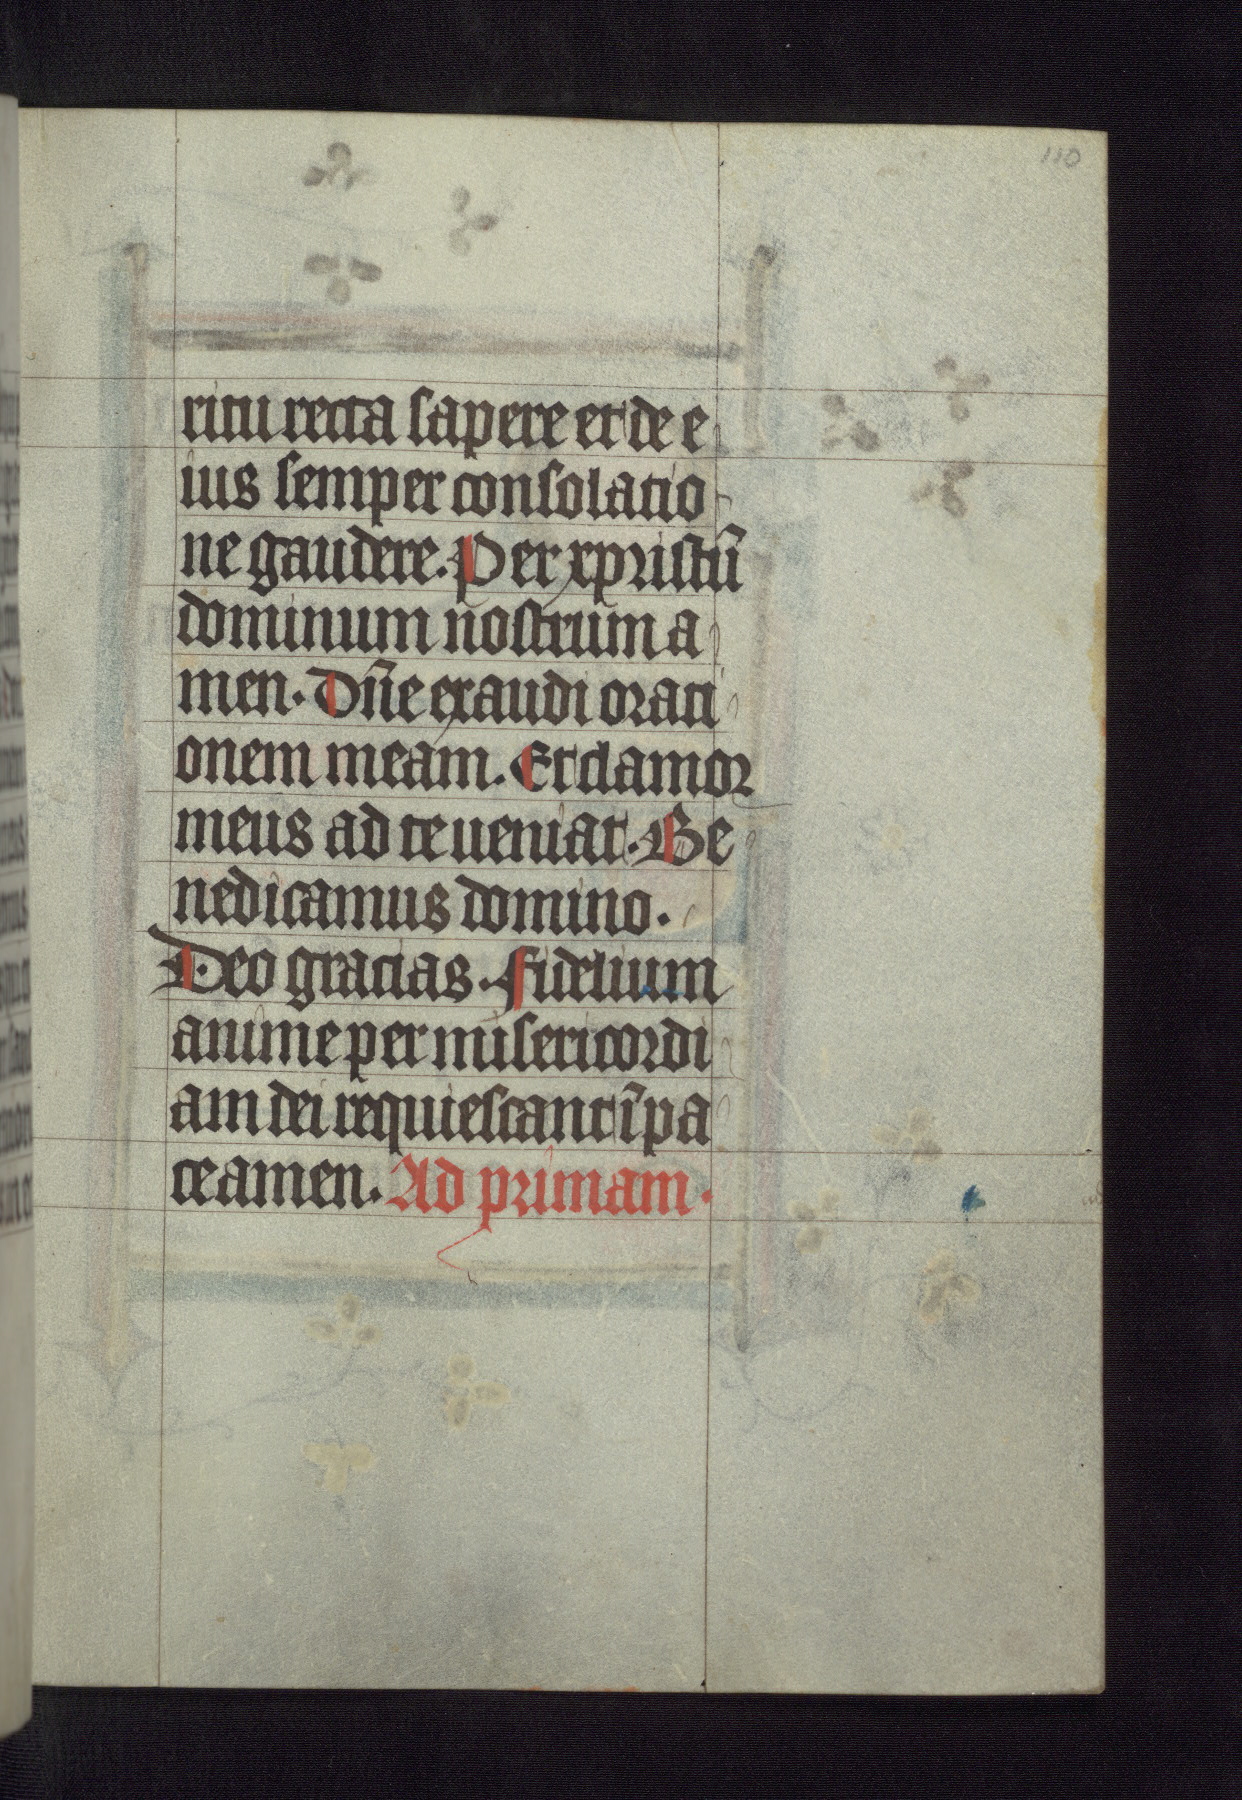 110
ritu recta sapere et de e
ius semper consolatio
ne gaudere. Per xpristū
dominum nostrum a
men. Dn̄e exaudi orati
onem meam. Et clamor
meus ad te ueniat. Be
nedicamus domino.
Deo gracias. fidelium
anime per misericordi
am dei requiescant ī pa
ce amen. Ad primam.